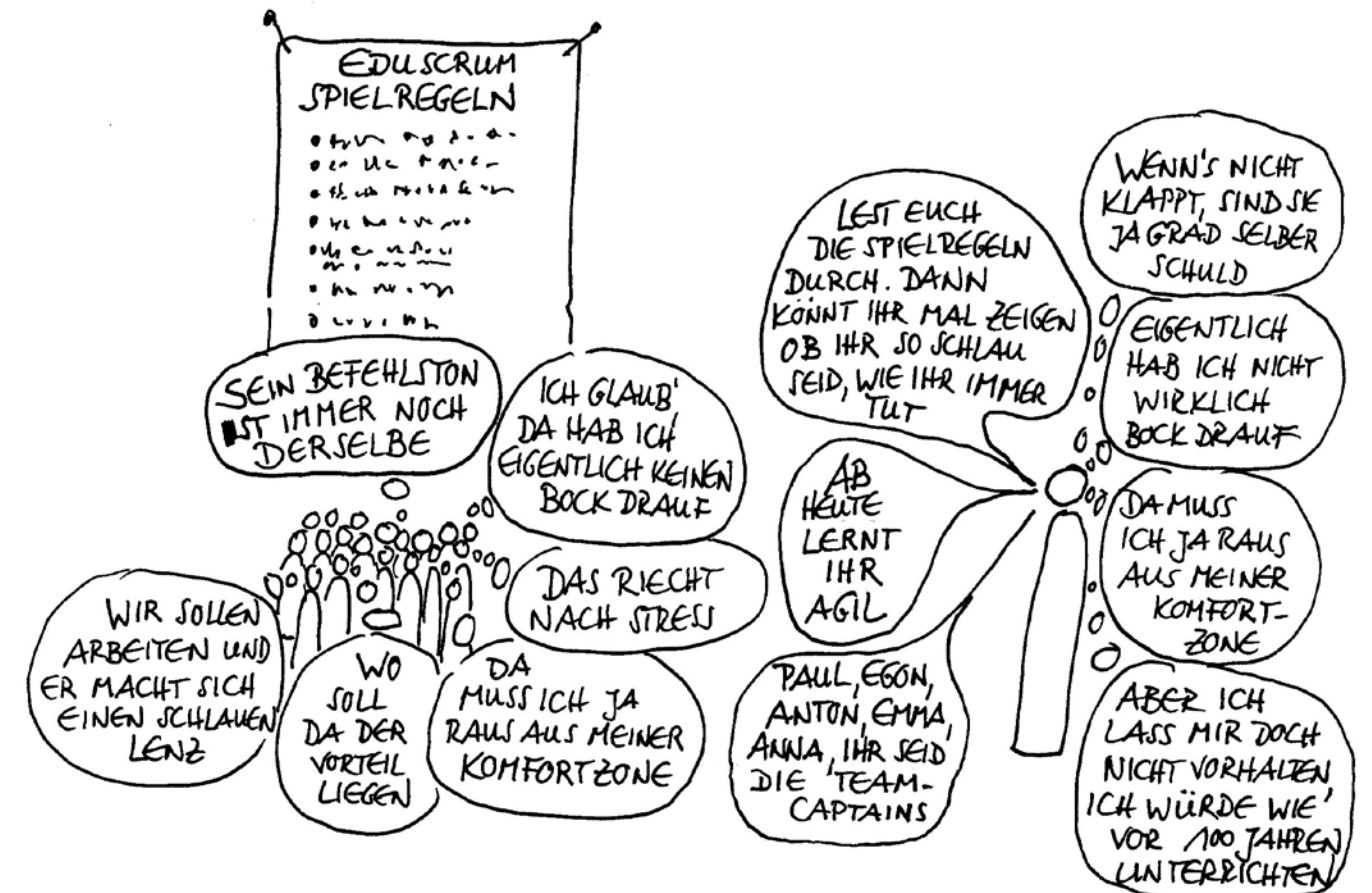 EDUSCRUM
SPIELREGELN
SEIN BEFEHLSTON
IST IMMER NOCH
DERSELBE
ICH GLAUB'
DA HAB ICH
EIGENTLICH KEINEN
BOCK DRAUF
DAS RIECHT
NACH STRESS
WIR SOLLEN
ARBEITEN UND
ER MACHT SICH
EINEN SCHLAUEN
LENZ
WO
SOLL
DA DER
VORTEIL
LIEGEN
DA
MUSS ICH JA
RAUS AUS MEINER
KOMFORTZONE
LEST EUCH
DIE SPIELREGELN
DURCH. DANN
KÖNNT IHR MAL ZEIGEN
OB IHR SO SCHLAU
SEID, WIE IHR IMMER
TUT
AB
HEUTE
LERNT
IHR
AGIL
PAUL, EGON,
ANTON, EMMA,
ANNA, IHR SEID
DIE TEAM-
CAPTAINS
WENN'S NICHT
KLAPPT, SIND SIE
JA GRAD SELBER
SCHULD
EIGENTLICH
HAB ICH NICHT
WIRKLICH
BOCK DRAUF
DA MUSS
ICH JA RAUS
AUS MEINER
KOMFORT-
ZONE
ABER ICH
LASS MIR DOCH
NICHT VORHALTEN,
ICH WÜRDE WIE
VOR 100 JAHREN
UNTERRICHTEN